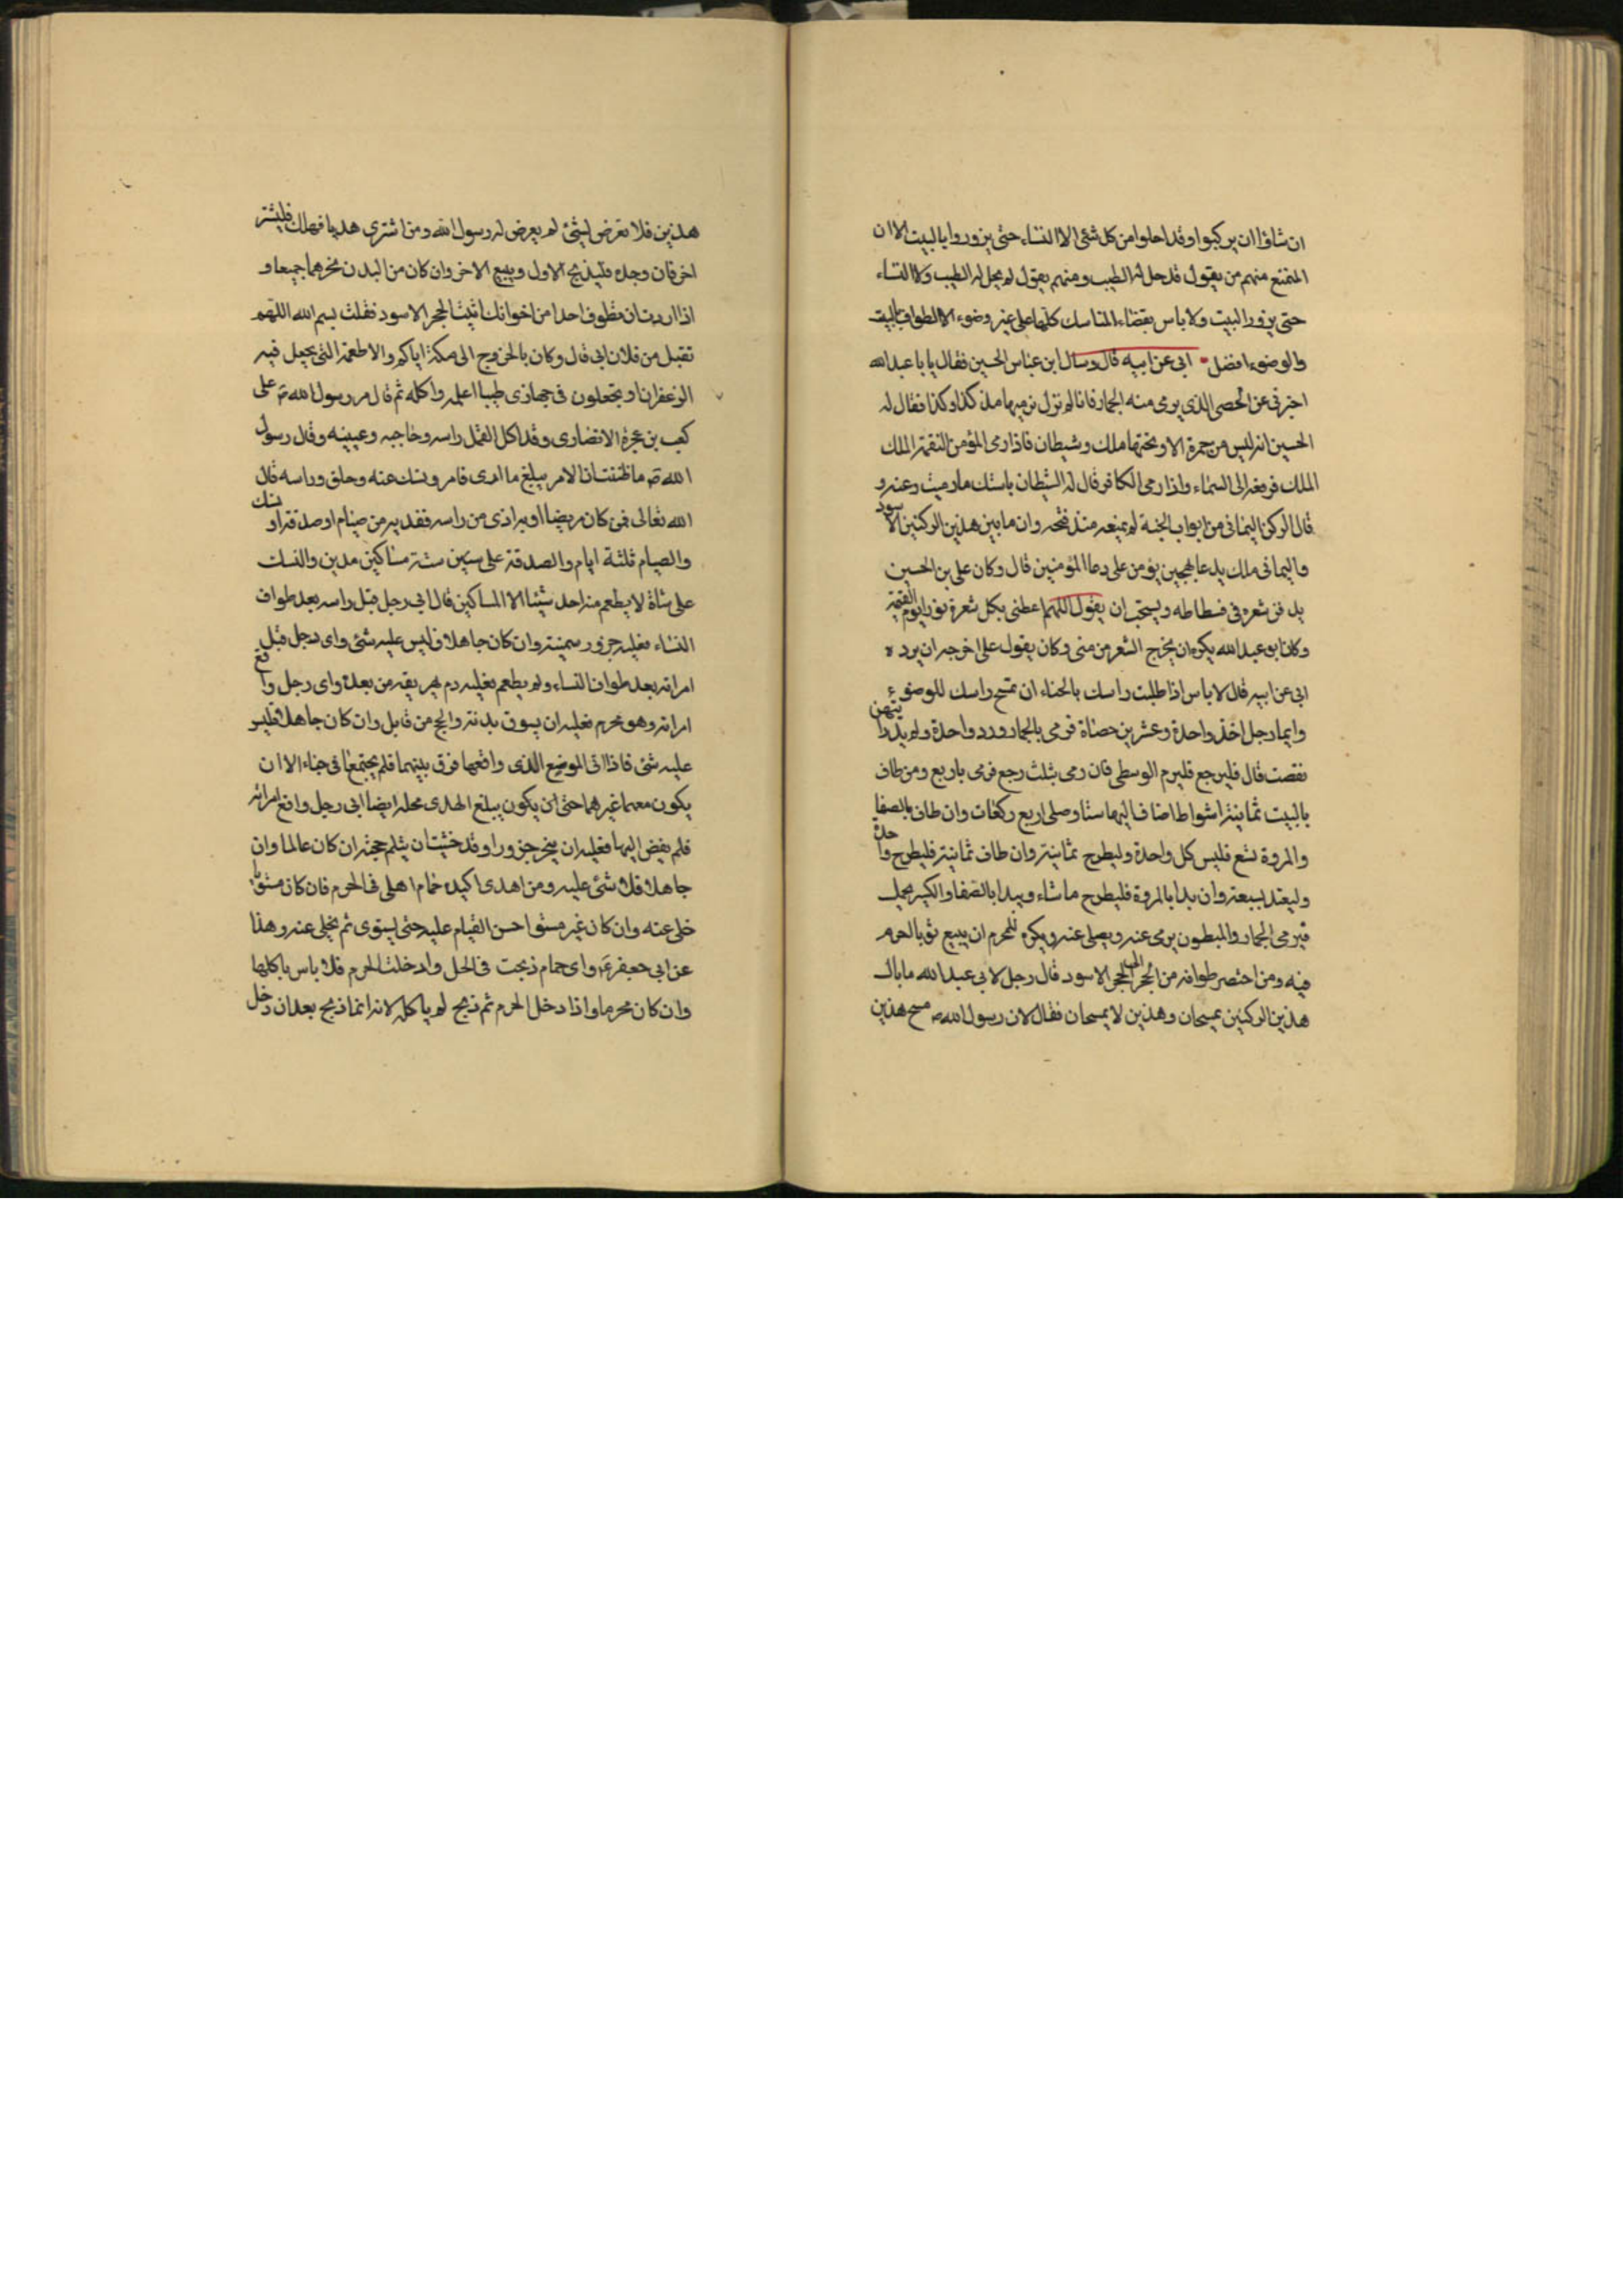 ان شاؤا ان يركبوا وقد احلوا من كل شئ الا النساء حتى يزوروا بالبيت الا ان
المتمتع منهم من يقول قد حل له الطيب ومنهم يقول لم يحل له الطيب ولا النساء
حتى يزور البيت ولا باس بقضاء المناسك كلها على غير وضوء الا الطواف بالبيت
والوضوء افضل ابى عن ابيه قال وسال ابن عباس الحسين فقال يا با عبد الله
اخبرنى عن الحصى الذى يرمى منه الجمار فانا لم نزل نرميها مذ كذا وكذا فقال له
الحسين انه ليس من جمرة الا وتحتها ملك وشيطان فاذا رمى المؤمن التقمه الملك
الملك فرفعه الى السماء واذا رمى الكافر قال له الشيطان باستك ما رميت وعنه و
قال الركن اليمانى من ابواب الجنة لم يمنعه منذ فتحه وان ما بين هذين الركنين الاسود
واليمانى ملك يدعا هجين يؤمن على دعا المؤمنين قال وكان على بن الحسين
يدفن شعره فى فسطاطه ويستحب ان يقول اللهم اعطنى بكل شعرة نورا يوم القيمة
وكان ابو عبد الله يكره ان يخرج الشعر من منى وكان يقول على اخرجه ان يرده
ابى عن ابيه قال لا باس اذا طليت راسك بالحناء ان تمسح راسك للوضوء
وايما رجل اخذ واحدة وعشرين حصاة فرمى بالجمار ورد واحدة ولم يدر ايتهن
نقصت قال فليرجع فليرم الوسطى فان رمى بثلث رجع فرمى باربع ومن طاف
بالبيت ثمانية اشواط اضاف اليها ستا وصلى اربع ركعات وان طاف بالصفا
والمروة تسع فليس كل واحدة وليطرح ثمانية وان طاف ثمانية فليطرح واحدة
وليعتد بسبعة وان بدا بالمروة فليطرح ما شاء ويبدا بالصفا والكسير يحمل
فيرمى الجمار والمبطون يرمى عنه ويصلى عنه ويكره للمحرم ان يبيع ثوبا لحرم
فيه ومن اختصر طوافه من الحجر الى الحجر الاسود قال رجل لابى عبد الله ما بال
هذين الركنين يمسحان وهذين لا يمسحان فقال لان رسول الله ص مسح هذين
هذين فلا تعرض لشئ لم يعرض له رسول الله ومن اشترى هديا فهلك فليشتر
اخر فان وجده فليذبح الاول ويبيع الاخر وان كان من البدن نحرهما جميعا و
اذا اردت ان تطوف احدا من اخوانك اتيت الحجر الاسود فقلت بسم الله اللهم
تقبل من فلان ابى قال وكان بالخروج الى مكة اياكم والاطعمة التى يجعل فيه
الزعفران او يتجعلون فى جهازى طيبا اعلمه واكله ثم قال مر رسول الله ص على
كعب بن عجرة الانصارى وقد اكل القمل راسه وحاجبه وعينيه وقال رسول
الله ص ما ظننت ان الامر يبلغ ما ارى فامر ونسك عنه وحلق وراسه قال
الله تعالى فمن كان مريضا او به اذى من راسه ففدية من صيام او صدقة او نسك
والصيام ثلثة ايام والصدقة على ستين ستة مساكين مدين والنسك
على شاة لا يطعم منه احد شيئا الا المساكين قال ابى رجل قبل راسه بعد طواف
النساء فعليه جزور سمينة وان كان جاهلا فليس عليه شئ واى رجل قبل
امراته بعد طواف النساء ولم يطعم فعليه دم يهريقه من بعده واى رجل واقع
امراته وهو محرم فعليه ان يسوق بدنة والحج من قابل وان كان جاهلا فليس
عليه شئ فاذا اتى الموضع الذى واقعها فرق بينهما فلم يجتمعا فى خباء الا ان
يكون معهما غيرهما حتى ان يكون يبلغ الهدى محله ايضا ابى رجل واقع امراته
فلم يفض اليها فعليه ان ينحر جزورا وقد خشيت ان يثلم حجته ان كان عالما وان
جاهلا فلا شئ عليه ومن اهدى اكيده حمام اهلى فى الحرم فان كان مستويا
خلى عنه وان كان غير مستو احسن القيام عليه حتى يستوى ثم يخلى عنه وهذا
عن ابى جعفر ع واى حمام ذبحت فى الحل وادخلت الحرم فلا باس باكلها
وان كان محرما واذا دخل الحرم ثم ذبح لم ياكله لانه انما ذبح بعد ان دخل